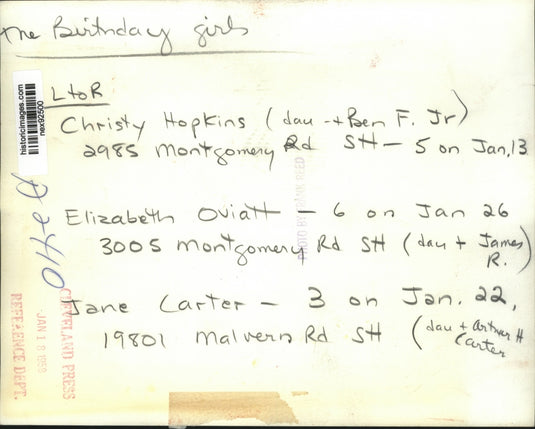 The Birthday girls
L to R
Christy Hopkins (dau + Ben F. Jr)
2985 Montgomery Rd SH - 5 on Jan. 13
Elizabeth Oviatt - 6 on Jan 26
3005 Montgomery Rd SH (dau + James R.)
Jane Carter - 3 on Jan. 22,
19801 Malvern Rd SH (dau + Arthur H Carter
historicimages.com
nex92500
PHOTO BY FRANK REED
CLEVELAND PRESS
JAN 18 1963
REFERENCE DEPT.